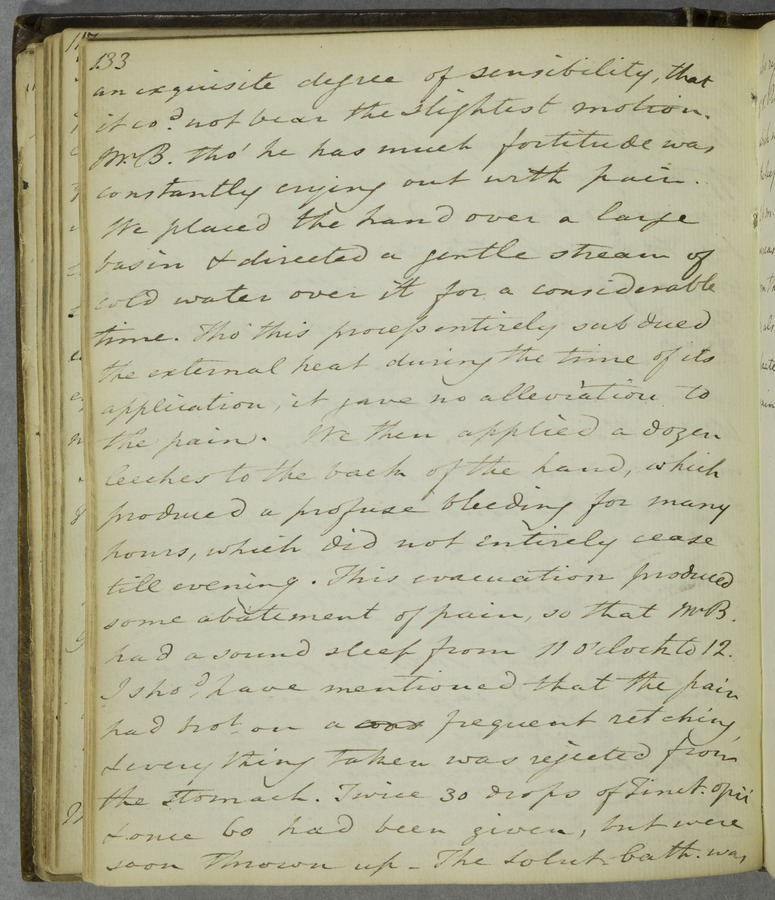 133
an exquisite degree of sensibility, that
it co.d not bear the slightest motion.
Mr. B. tho' he has much fortitude was
constantly crying out with pain.
We placed the hand over a large
basin & directed a gentle stream of
cold water over it for a considerable
time. Tho' this process entirely subdued
the external heat during the time of its
application, it gave no alleviation to
the pain. We then applied a dozen
leeches to the back of the hand, which
produced a profuse bleeding for many
hours, which did not entirely cease
till evening. This evacuation produced
some abatement of pain, so that Mr B.
had a sound sleep from 11 o'clock to 12.
I sho.d have mentioned that the pain
had brot. on a frequent retching,
& every thing taken was rejected from
the stomach. Twice 30 drops of Tinct. opii
& once 60 had been given, but were
soon thrown up - The solut. cath. was